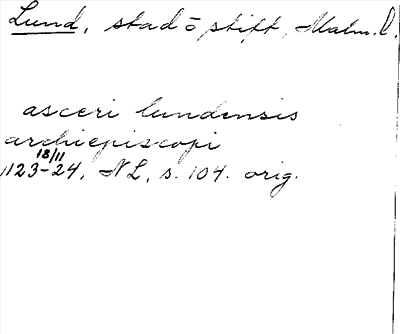 Lund, stad o stift, Malm. l.
asceri lundensis
archiepiscopi
18/11
1123-24, NL, s. 104. orig.